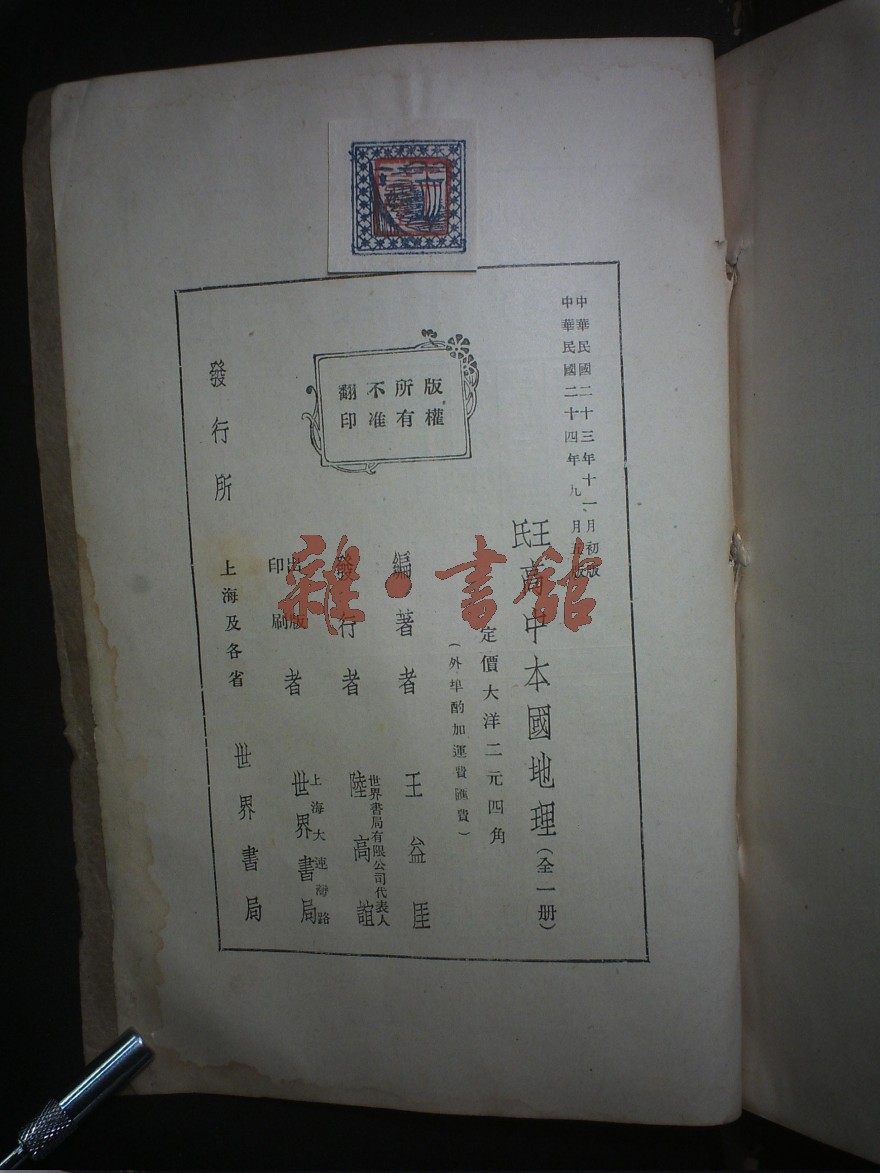 中華民國二十三年十一月初版
中華民國二十四年九月五版
王氏高中本國地理(全一册)
定價大洋二元四角
(外埠酌加運費匯費)
版權
所有
不准
翻印
編著者 王益厓
發行者 世界書局有限公司代表人 陸高誼
出版
印刷者 上海大連灣路 世界書局
發行所 上海及各省 世界書局
雜·書館